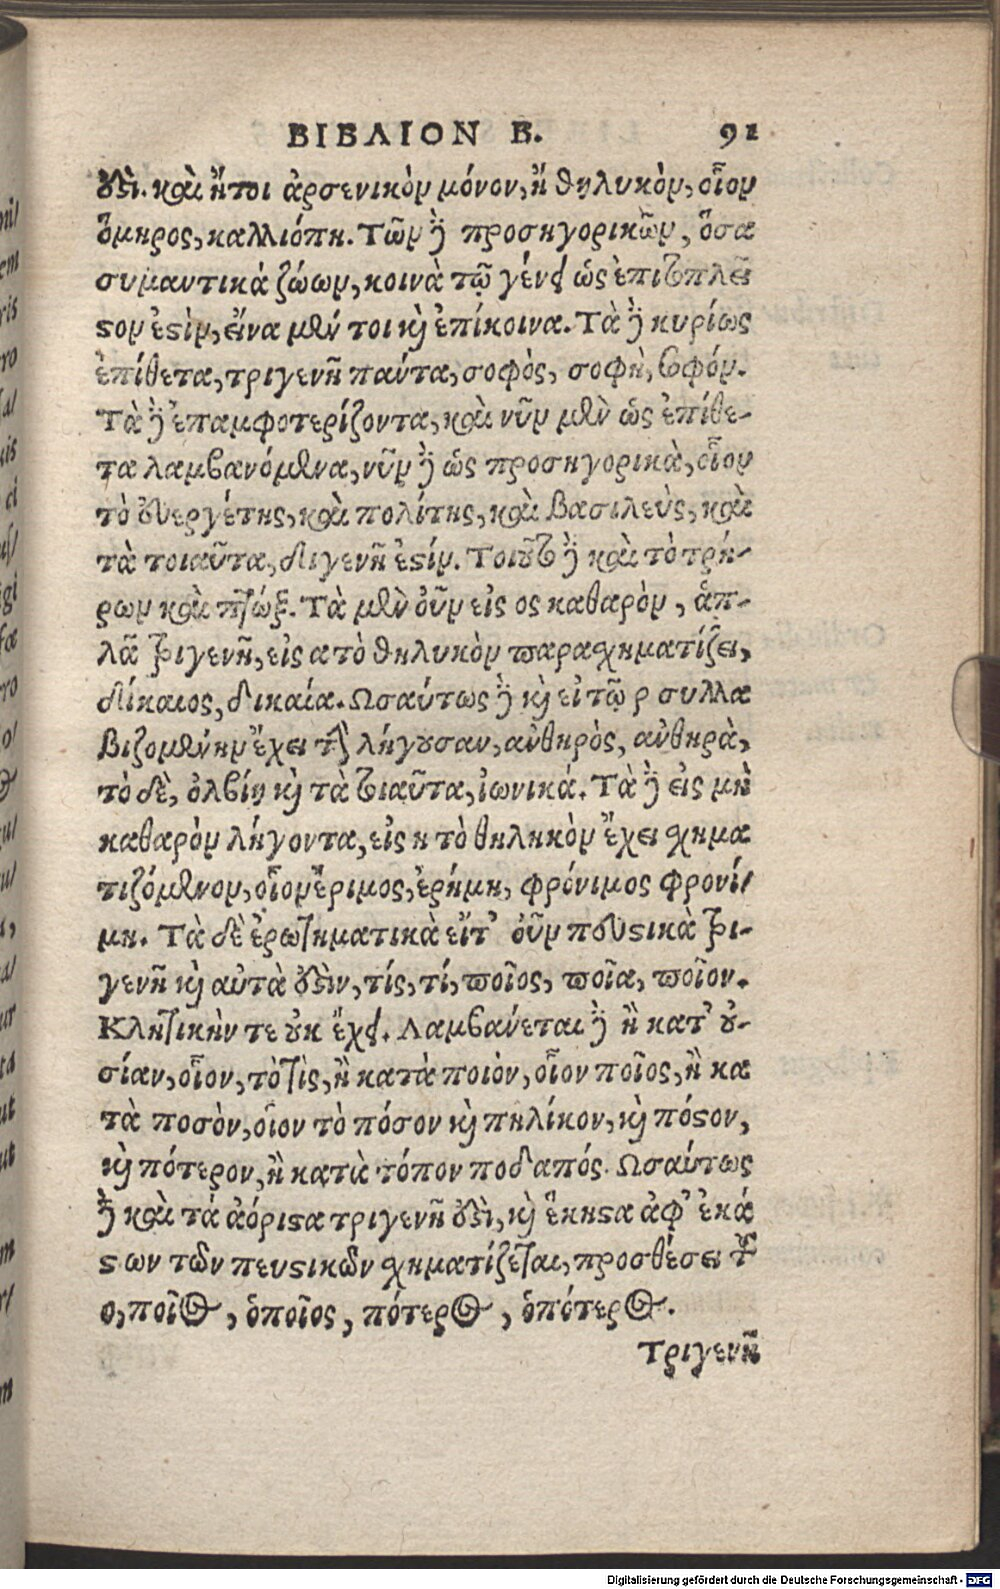 ΒΙΒΛΙΟΝ Β. 91
ἐστὶ. καὶ ἤτοι ἀρσενικὸν μόνον, ἢ θηλυκὸν, οἷον
ὅμηρος, καλλιόπη. Τῶν δὲ προσηγορικῶν, ὅσα
συμαντικά ζώων, κοινὰ τῷ γένει ὡς ἐπιτοπλεῖ
στον ἐστὶν, εἵνα μέν τοι καὶ ἐπίκοινα. Τὰ δὲ κυρίως
ἐπίθετα, τριγενῆ πάντα, σοφὸς, σοφὴ, σοφόν.
Τὰ δὲ ἐπαμφοτερίζοντα, καὶ νῦν μὲν ὡς ἐπίθε-
τα λαμβανόμενα, νῦν δὲ ὡς προσηγορικὰ, οἷον
τὸ εὐεργέτης, καὶ πολίτης, καὶ βασιλεὺς, καὶ
τὰ τοιαῦτα, διγενῆ ἐστίν. Τοιοῦτο δὲ καὶ τὸ τρή-
ρων καὶ πτώξ. Τὰ μὲν οὖν εἰς ος καθαρὸν, ἁπ-
λᾶ τριγενῆ, εἰς α τὸ θηλυκὸν παραχηματίζει,
δίκαιος, δικαία. Ωσαύτως δὲ καὶ εἰ τῷ ρ συλλα
βιζομένην ἔχει τὴν λήγουσαν, ἀνθηρὸς, ἀνθηρὰ,
τὸ δὲ, ὀλβίη καὶ τὰ τοιαῦτα, ἰωνικά. Τὰ δὲ εἰς μὴ
καθαρὸν λήγοντα, εἰς η τὸ θηληκὸν ἔχει χημα
τιζόμενον, οἷον ἔριμος, ἐρήμη, φρόνιμος φρονί-
μη. Τὰ δὲ ἐρωτηματικὰ εἴτ' οὖν πευστικὰ τρι-
γενῆ καὶ αὐτὰ ἐστὶν, τίς, τί, ποῖος, ποῖα, ποῖον.
Κλητικὴν τε οὐκ ἔχει. Λαμβάνεται δὲ ἢ κατ' οὐ-
σίαν, οἷον, τὸ τὶς, ἢ κατὰ ποιόν, οἷον ποῖος, ἢ κα
τὰ ποσὸν, οἷον τὸ πόσον καὶ πηλίκον, καὶ πόστον,
καὶ πότερον, ἢ κατὰ τόπον ποδαπός. Ωσαύτως
δὲ καὶ τά ἀόριστα τριγενῆ ἐστὶ, καὶ ἕκηστα ἀφ' ἑκά
στων τῶν πευστικῶν χηματίζεται, προσθέσει τοῦ
ο, ποῖος, ὁποῖος, πότερος, ὁπότερος.
Τριγενῆ
Digitalisierung gefördert durch die Deutsche Forschungsgemeinschaft - DFG